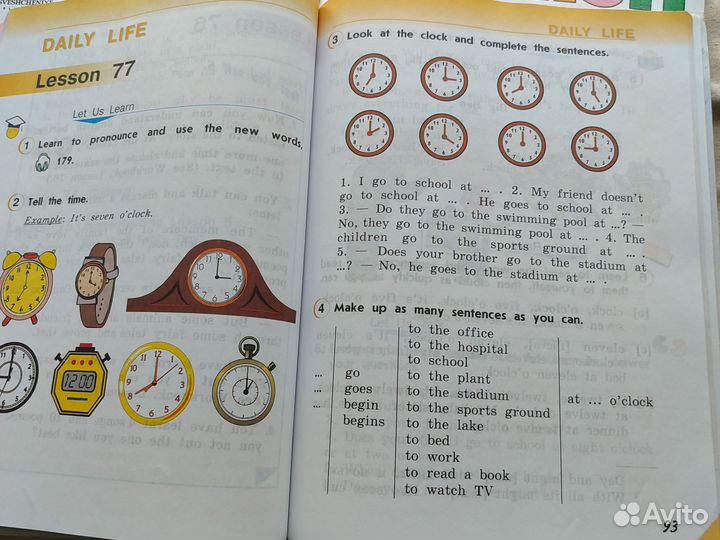 DAILY LIFE
Lesson 77
Let Us Learn
1 Learn to pronounce and use the new words.
179.
2 Tell the time.
Example: It's seven o'clock.
12:00
DAILY LIFE
3 Look at the clock and complete the sentences.
1. I go to school at ... . 2. My friend doesn't
go to school at ... . He goes to school at ... .
3. — Do they go to the swimming pool at ...? —
No, they go to the swimming pool at ... . 4. The
children go to the sports ground at ... .
5. — Does your brother go to the stadium at
...? — No, he goes to the stadium at ... .
4 Make up as many sentences as you can.
to the office
to the hospital
to school
... go to the plant
... goes to the stadium at ... o'clock
... begin to the sports ground
begins to the lake
to bed
to work
to read a book
to watch TV
93
Avito